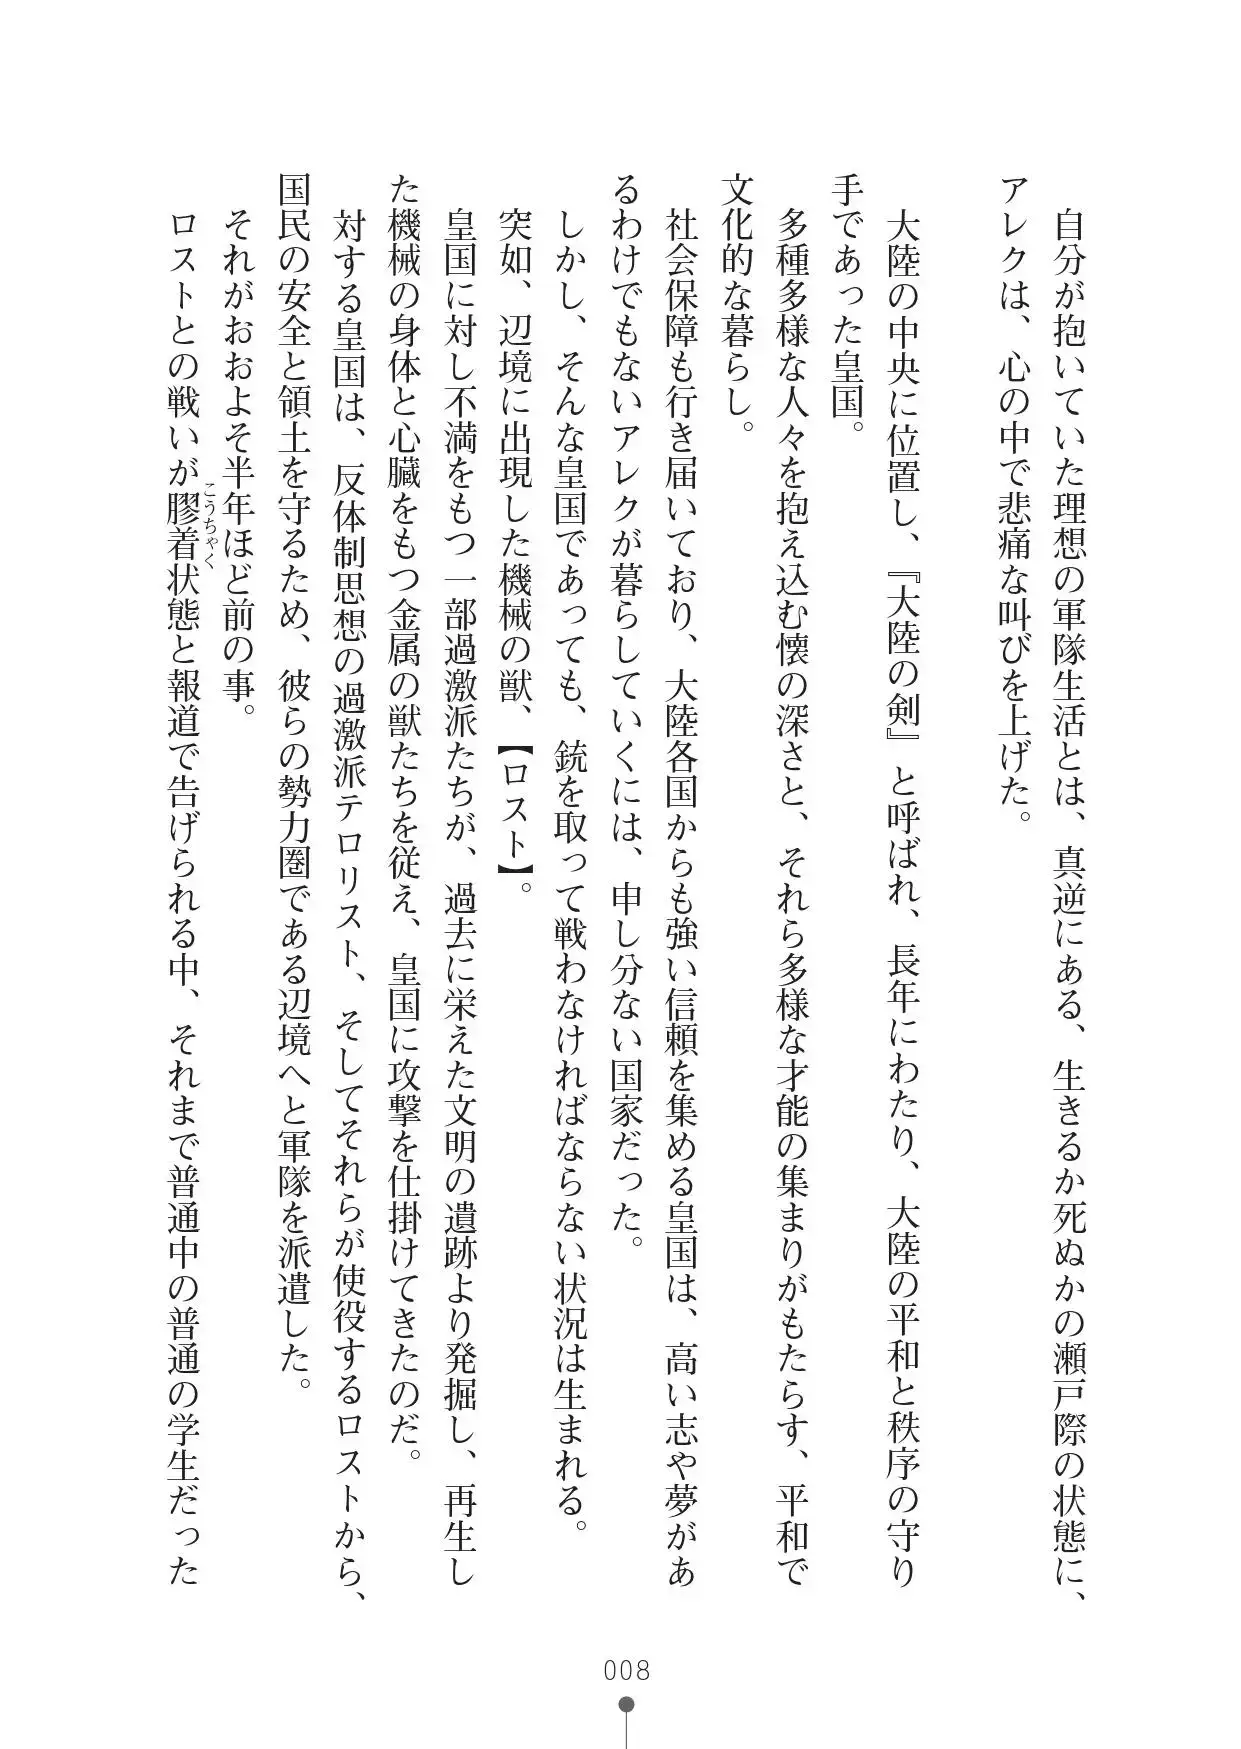 自分が抱いていた理想の軍隊生活とは、真逆にある、生きるか死ぬかの瀬戸際の状態に、
アレクは、心の中で悲痛な叫びを上げた。
大陸の中央に位置し、『大陸の剣』と呼ばれ、長年にわたり、大陸の平和と秩序の守り
手であった皇国。
多種多様な人々を抱え込む懐の深さと、それら多様な才能の集まりがもたらす、平和で
文化的な暮らし。
社会保障も行き届いており、大陸各国からも強い信頼を集める皇国は、高い志や夢があ
るわけでもないアレクが暮らしていくには、申し分ない国家だった。
しかし、そんな皇国であっても、銃を取って戦わなければならない状況は生まれる。
突如、辺境に出現した機械の獣、【ロスト】。
皇国に対し不満をもつ一部過激派たちが、過去に栄えた文明の遺跡より発掘し、再生し
た機械の身体と心臓をもつ金属の獣たちを従え、皇国に攻撃を仕掛けてきたのだ。
対する皇国は、反体制思想の過激派テロリスト、そしてそれらが使役するロストから、
国民の安全と領土を守るため、彼らの勢力圏である辺境へと軍隊を派遣した。
それがおおよそ半年ほど前の事。
こうちゃく
ロストとの戦いが膠着状態と報道で告げられる中、それまで普通中の普通の学生だった
008